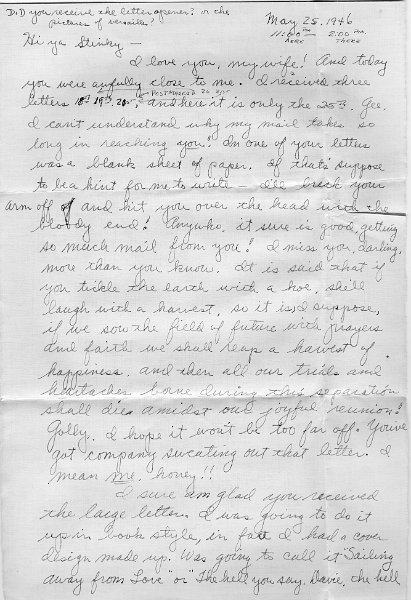 DiD you receive the letter opener? or the
pictures of versailles?
May 25, 1946
11:00 PM 2:00 PM.
HERE THERE
Hi ya Stinky —
I love you, my wife! And today
you were awfully close to me. I received three
POSTMARKED
letters 18th 19th 20th, and here it is only the 25th. Gee.
I can't understand why my mail takes so
long in reaching you! In one of your letters
was a blank sheet of paper. If that's suppose
to be a hint for me to write — I'll break your
arm off and hit you over the head with the
bloody end! Anywho, it sure is good getting
so much mail from you! I miss you, darling,
more than you know. It is said that if
you tickle the earth with a hoe, she'll
laugh with a harvest, so it is, I suppose,
if we sow the field of future with prayers
and faith we shall reap a harvest of
happiness. and then all our trials and
heartaches borne during this separation
shall die amidst our joyful reunion!
Golly, I hope it won't be too far off. You've
got company sweating out that letter. I
mean me, honey!!
I sure am glad you received
the large letter. I was going to do it
up in book style, in fact I had a cover
design made up. Was going to call it "Sailing
away from Love" or "The hell you say, Davie, the hell